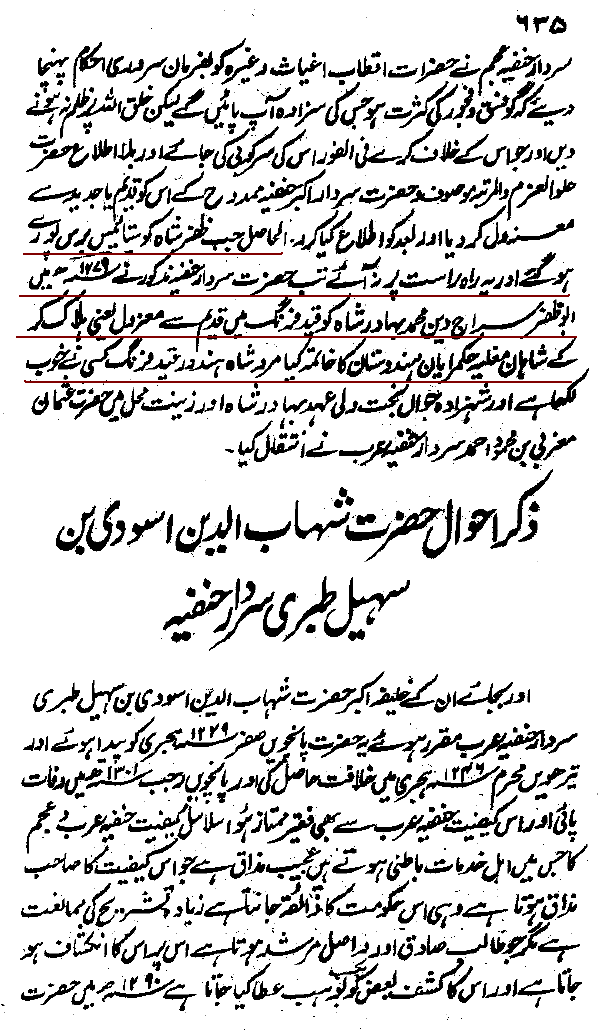 ۶۳۵
سردار خفیہ عجم نے حضرات اقطاب اغیاث وغیرہ کو بفرمان سروری احکام پہنچا
دیے کہ گو فسق و فجور کی کثرت ہو جس کی سزا وہ آپ پائیں گے لیکن خلق اللہ پر ظلم نہ ہونے
دیں اور جو اس کے خلاف کرے فی الفور اس کی سرکوبی کی جائے اور بلا اطلاع حضرت
علو العزم والمرتبہ موصوف و حضرت سردار اکبر خفیہ ممدوح کے اس کو قدیم یا جدید سے
معزول کر دیا اور بعد کو اطلاع کیا کرو۔ الحاصل جب ظفر شاہ کو ستائیس برس پورے
ہو گئے اور یہ راہ راست پر نہ آئے تب حضرت سردار خفیہ مذکور نے ۱۲۷۹ھ میں
ابو ظفر سراج دین محمد بہادر شاہ کو قید فرنگ میں قدیم سے معزول یعنی ہلاک کر
کے شاہان مغلیہ حکمرایان ہندوستان کا خاتمہ کیا مرد شاہ ہند در قید فرنگ کسی نے خوب
لکھا ہے اور شہزادہ جواں بخت ولی عہد بہادر شاہ اور زینت محل میں حضرت عثمان
مغربی بن محمود احمد سردار خفیہ عرب نے انتقال کیا۔
ذکر احوال حضرت شہاب الدین اسودی بن
سہیل طبری سردار خفیہ
اور بجائے ان کے خلیفہ اکبر حضرت شہاب الدین اسودی بن سہیل طبری
سردار خفیہ عرب مقرر ہوئے یہ حضرت پانچویں صفر ۱۲۲۹ ہجری کو پیدا ہوئے اور
تیرھویں محرم ۱۲۴۶ ہجری میں خلافت حاصل کی اور پانچویں رجب ۱۳۰۱ھ میں وفات
پائی اور اس کیفیت خفیہ عرب سے بھی فقیر ممتاز ہوا سلاسل کیفیت خفیہ عرب و عجم
کا جس میں اہل خدمات باطنی ہوتے ہیں عجیب مذاق ہے جو اس کیفیت کا صاحب
مذاق ہوتا ہے وہی اس حکومت کا ذائقہ جانتا ہے زیادہ تشریح کی ممانعت
ہے مگر جو طالب صادق اور واصل مرشد ہوتا ہے اس پر اس کا انکشاف ہو
جاتا ہے اور اس کا کشف بعض کو کو عطا کیا جاتا ہے ۱۲۹۰ھ میں حضرت